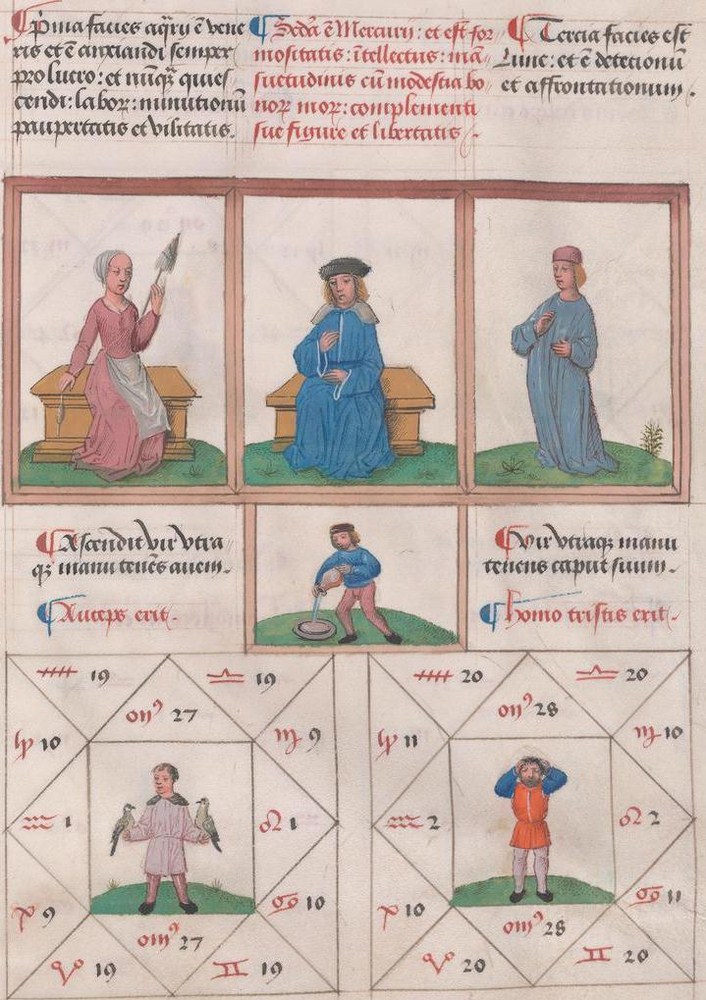 Pͥma facies aqͣrij ē vene
ris et ē anxiandi semper
pro lucro: et nūqͣꝫ quies
cendi: labor: minutionū
paupertatis et vilitatis.
Scd̄a ē Mercurij: et est for
mositatis: ītellectus: mā
suetudinis cū modestia bo
norꝝ morꝝ: complementi
sue figure et libertatis.
Tercia facies est
Lune: et ē detectionū
et affrontationum.
Ascendit vir vtra
qꝫ manu tenēs auem.
Auceps erit.
Vir vtraqꝫ manu
tenens caput suum.
Homo tristis erit.
19 ♎ 19
27
10 ♏ 9
♒ 1 ♌ 1
9 ♋ 10
27
♈ 19 ♊ 19
20 ♎ 20
28
11 ♏ 10
♒ 2 ♌ 2
10 ♋ 11
28
♈ 20 ♊ 20